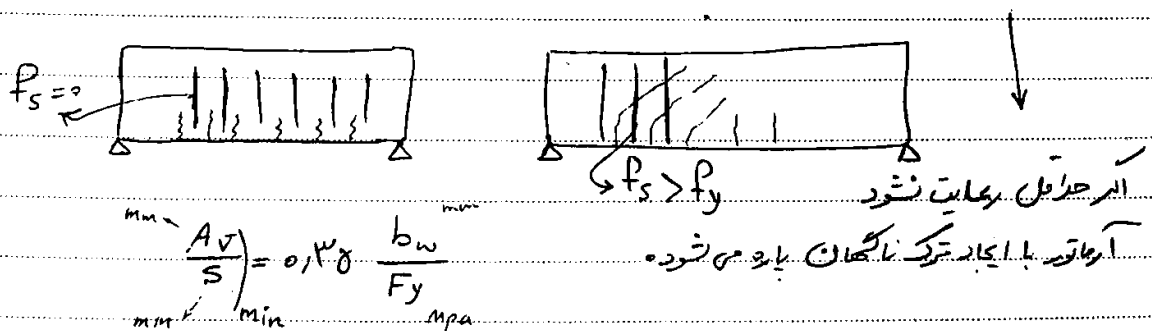 fs = 0
fs > fy
اگر حداقل رعایت نشود
آرماتور با ایجاد ترک ناگهان پاره می‌شود.
Av/S)min = 0,35 bw/Fy
mm
mm
mm
Mpa